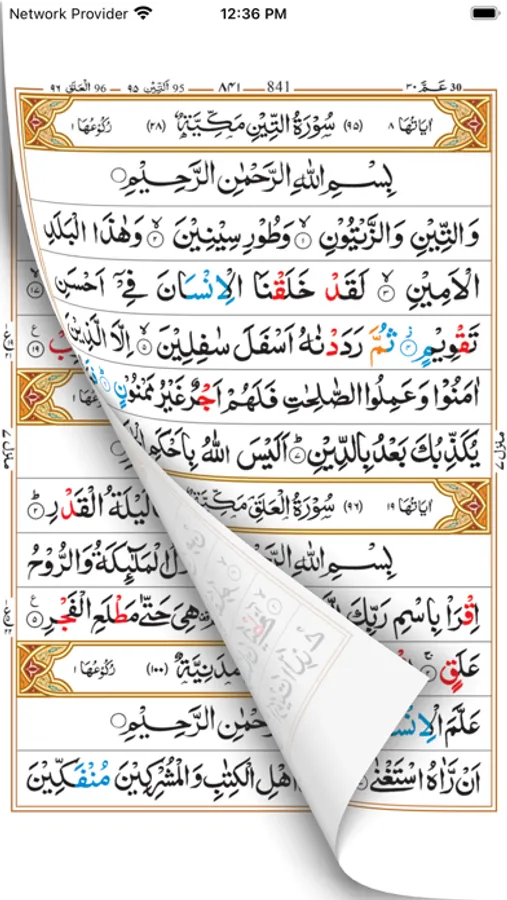 Network Provider 12:36 PM
96 العلق ٩٦ — 95 التين ٩٥ — ٨٤١ 841 — عم ٣٠ 30
اٰيَاتُهَا ٨ (٩٥) سُوْرَةُ التِّيْنِ مَكِّيَّةٌ (٢٨) رُكُوْعُهَا ١
بِسْمِ اللّٰهِ الرَّحْمٰنِ الرَّحِيْمِ
وَالتِّيْنِ وَالزَّيْتُوْنِ ١ وَطُوْرِ سِيْنِيْنَ ٢ وَهٰذَا الْبَلَدِ
الْاَمِيْنِ ٣ لَقَدْ خَلَقْنَا الْاِنْسَانَ فِيْۤ اَحْسَنِ ١٧
تَقْوِيْمٍ ٤ ثُمَّ رَدَدْنٰهُ اَسْفَلَ سٰفِلِيْنَ ٥ اِلَّا الَّذِيْنَ ١٩
اٰمَنُوْا وَعَمِلُوا الصّٰلِحٰتِ فَلَهُمْ اَجْرٌ غَيْرُ مَمْنُوْنٍ ٦ رُكُوْعُهَا ١
يُكَذِّبُكَ بَعْدُ بِالدِّيْنِ ٧ اَلَيْسَ اللّٰهُ بِاَحْكَمِ
منزل ٧
اٰيَاتُهَا ١٩ (٩٦) سُوْرَةُ الْعَلَقِ مَكِّيَّةٌ لَيْلَةُ الْقَدْرِ ٢
بِسْمِ اللّٰهِ الْمَلٰٓئِكَةُ وَالرُّوْحُ
اِقْرَاْ بِاسْمِ رَبِّكَ هِيَ حَتّٰى مَطْلَعِ الْفَجْرِ ٥
عَلَقٍ مَدَنِيَّةٌ (١٠٠) رُكُوْعُهَا ١
عَلَّمَ الْاِنْسَ الرَّحْمٰنِ الرَّحِيْمِ
اَنْ رَّاٰهُ اسْتَغْنٰى اَهْلِ الْكِتٰبِ وَالْمُشْرِكِيْنَ مُنْفَكِّيْنَ